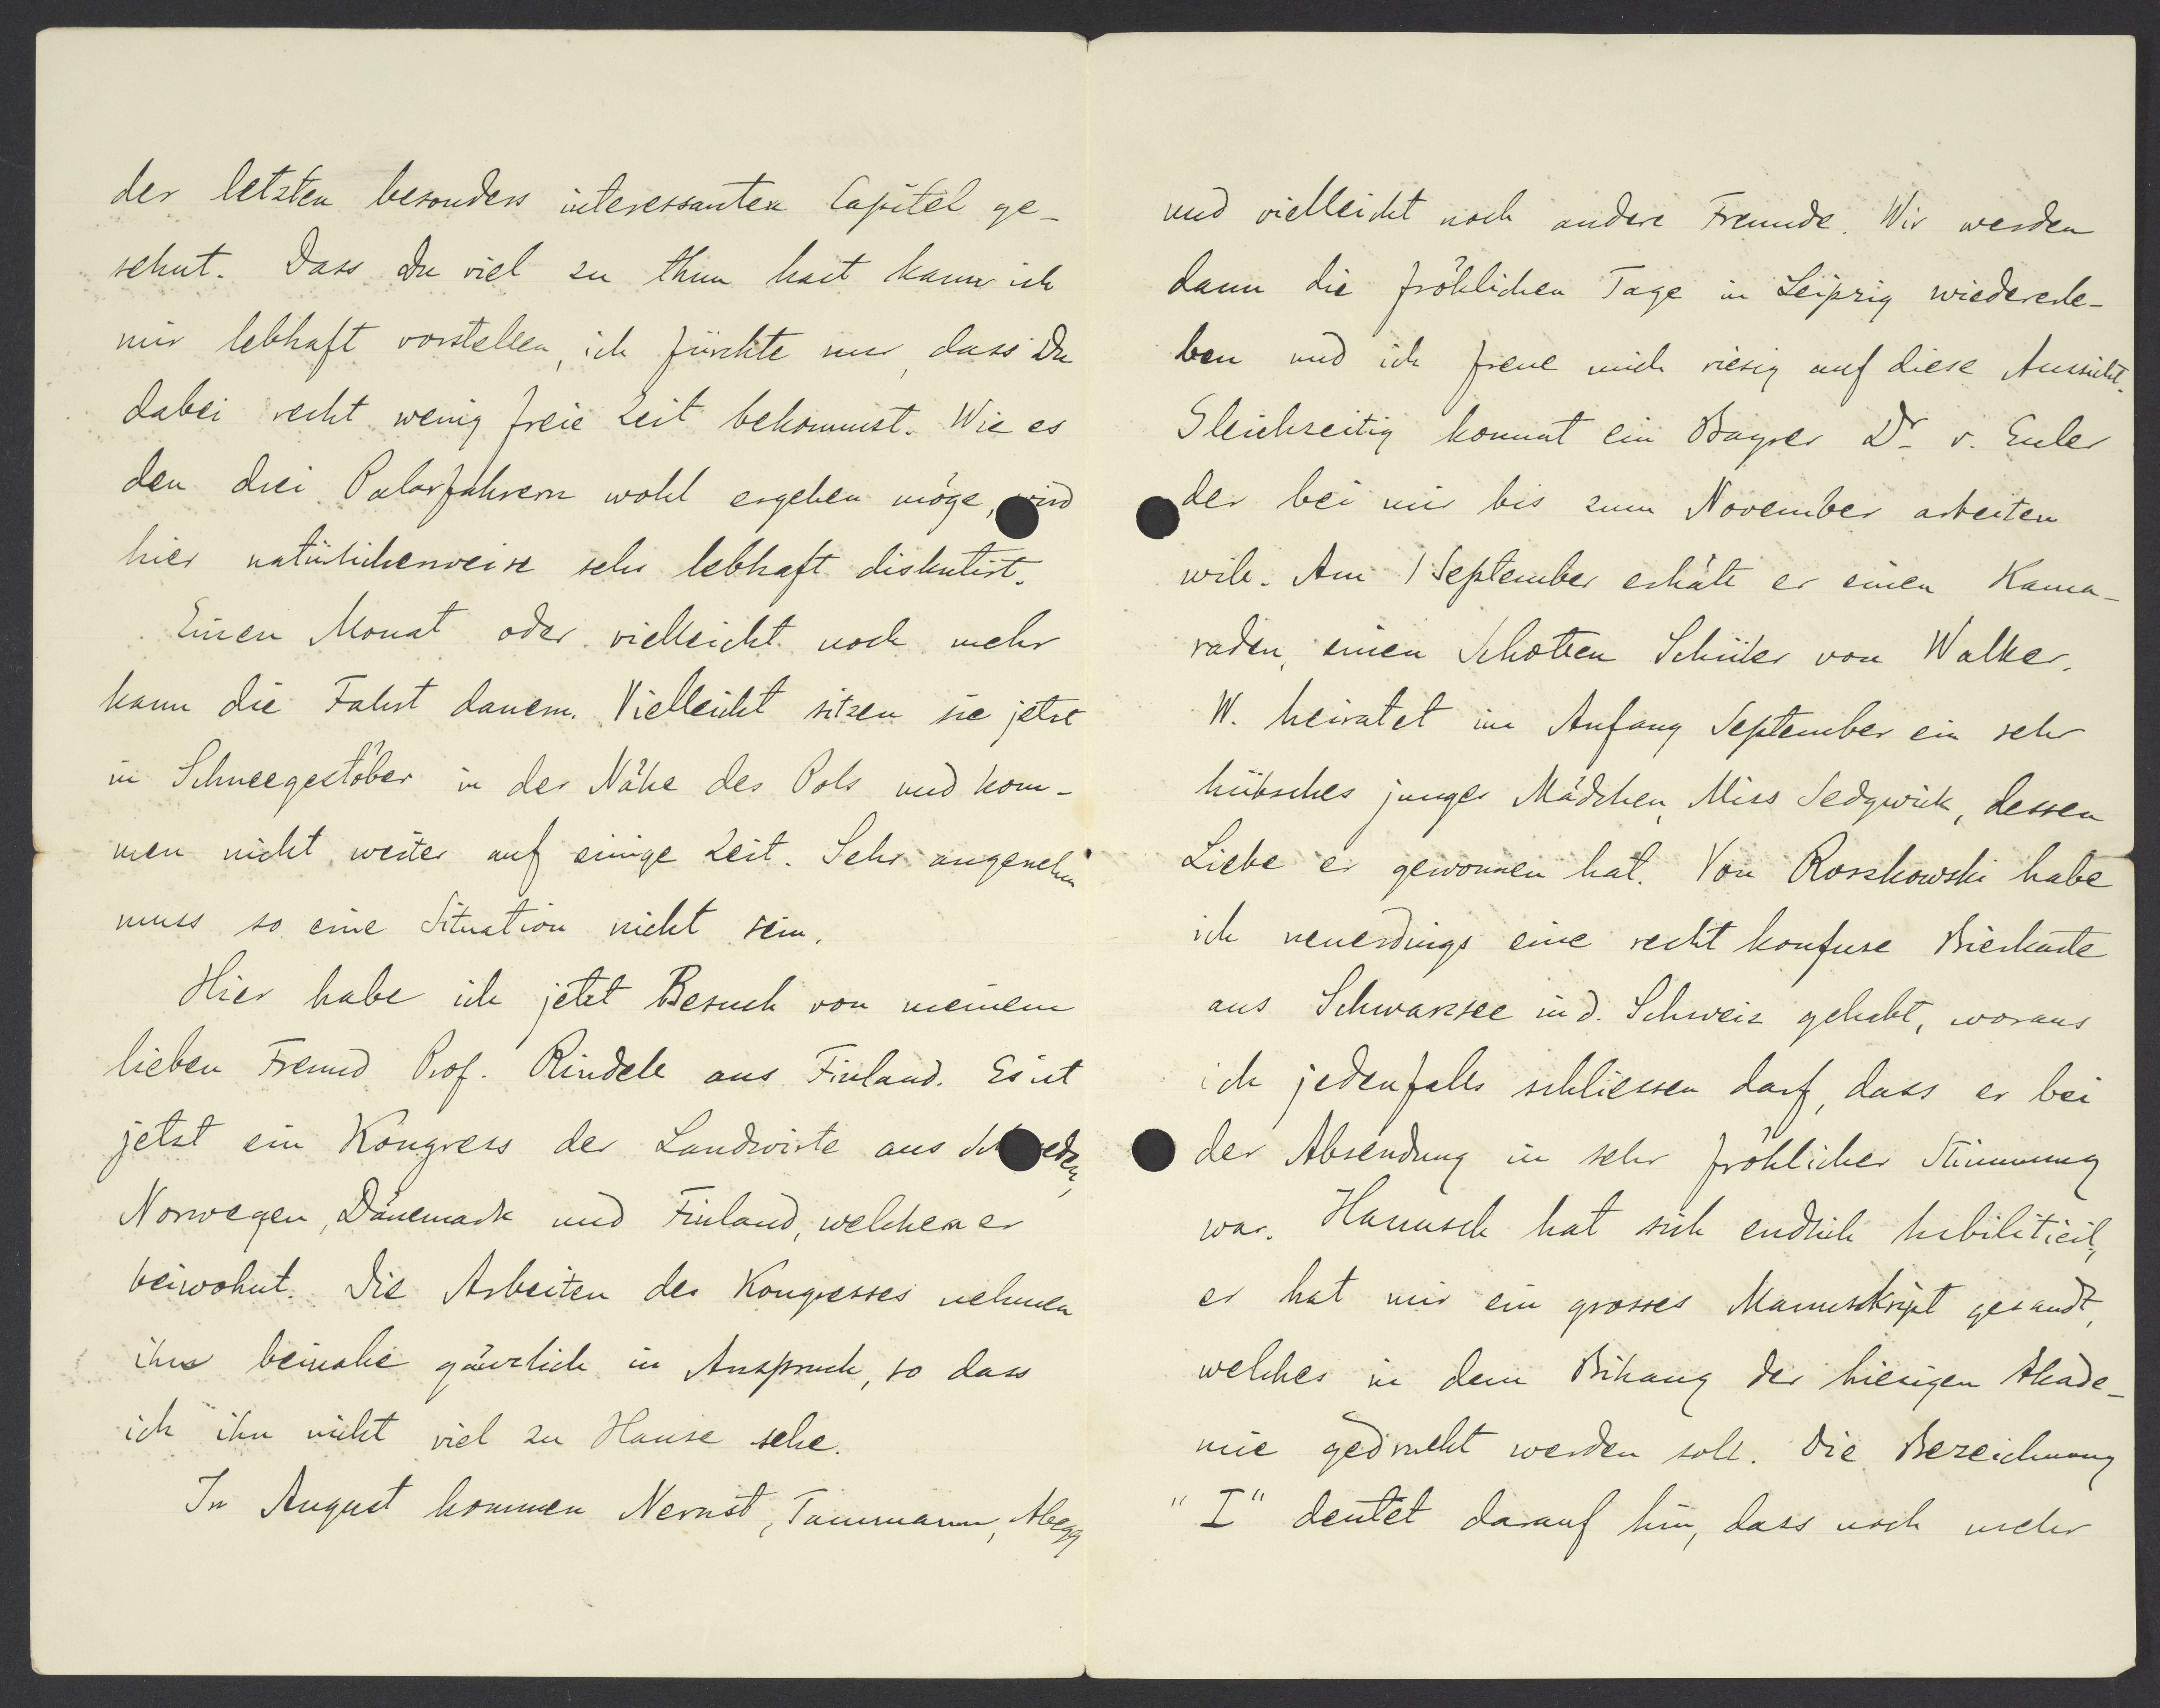 der letzten besonders interessanten Capitel ge-
sehnt. Dass Du viel zu thun hast kann ich
mir lebhaft vorstellen, ich fürchte nur, dass Du
dabei recht wenig freie Zeit bekommst. Wie es
den drei Polarfahrern wohl ergehen möge, wird
hier natürlicherweise sehr lebhaft diskutirt.
Einen Monat oder vielleicht noch mehr
kann die Fahrt dauern. Vielleicht sitzen sie jetzt
in Schneegestöber in der Nähe des Pols und kom-
men nicht weiter auf einige Zeit. Sehr angenehm
muss so eine Situation nicht sein.
Hier habe ich jetzt Besuch von meinem
lieben Freund Prof. Rindell aus Finland. Es ist
jetzt ein Kongress der Landwirte aus Schweden,
Norwegen, Dänemark und Finland, welchem er
beiwohnt. Die Arbeiten des Kongresses nehmen
ihn beinahe gänzlich in Anspruch, so dass
ich ihn nicht viel zu Hause sehe.
In August kommen Nernst, Tammann, Abegg
und vielleicht noch andere Freunde. Wir werden
dann die fröhlichen Tage in Leipzig wiedererle-
ben und ich freue mich riesig auf diese Aussicht.
Gleichzeitig kommt ein Bayrer Dr v. Euler
der bei mir bis zum November arbeiten
will. Am 1 September erhält er einen Kama-
raden, einen Schotten Schüler von Walker.
W. heiratet im Anfang September ein sehr
hübsches junges Mädchen, Miss Sedgwick, dessen
Liebe er gewonnen hat. Von Roszkowski habe
ich neuerdings eine recht konfuse Bierkarte
aus Schwarzsee in d. Schweiz gehabt, woraus
ich jedenfalls schliessen darf, dass er bei
der Absendung in sehr fröhlicher Stimmung
war. Hamusch hat sich endlich habilitirt,
er hat mir ein grosses Manuskript gesandt,
welches in dem Bihang der hiesigen Akade-
mie gedruckt werden soll. Die Bezeichnung
"I" deutet darauf hin, dass noch mehr